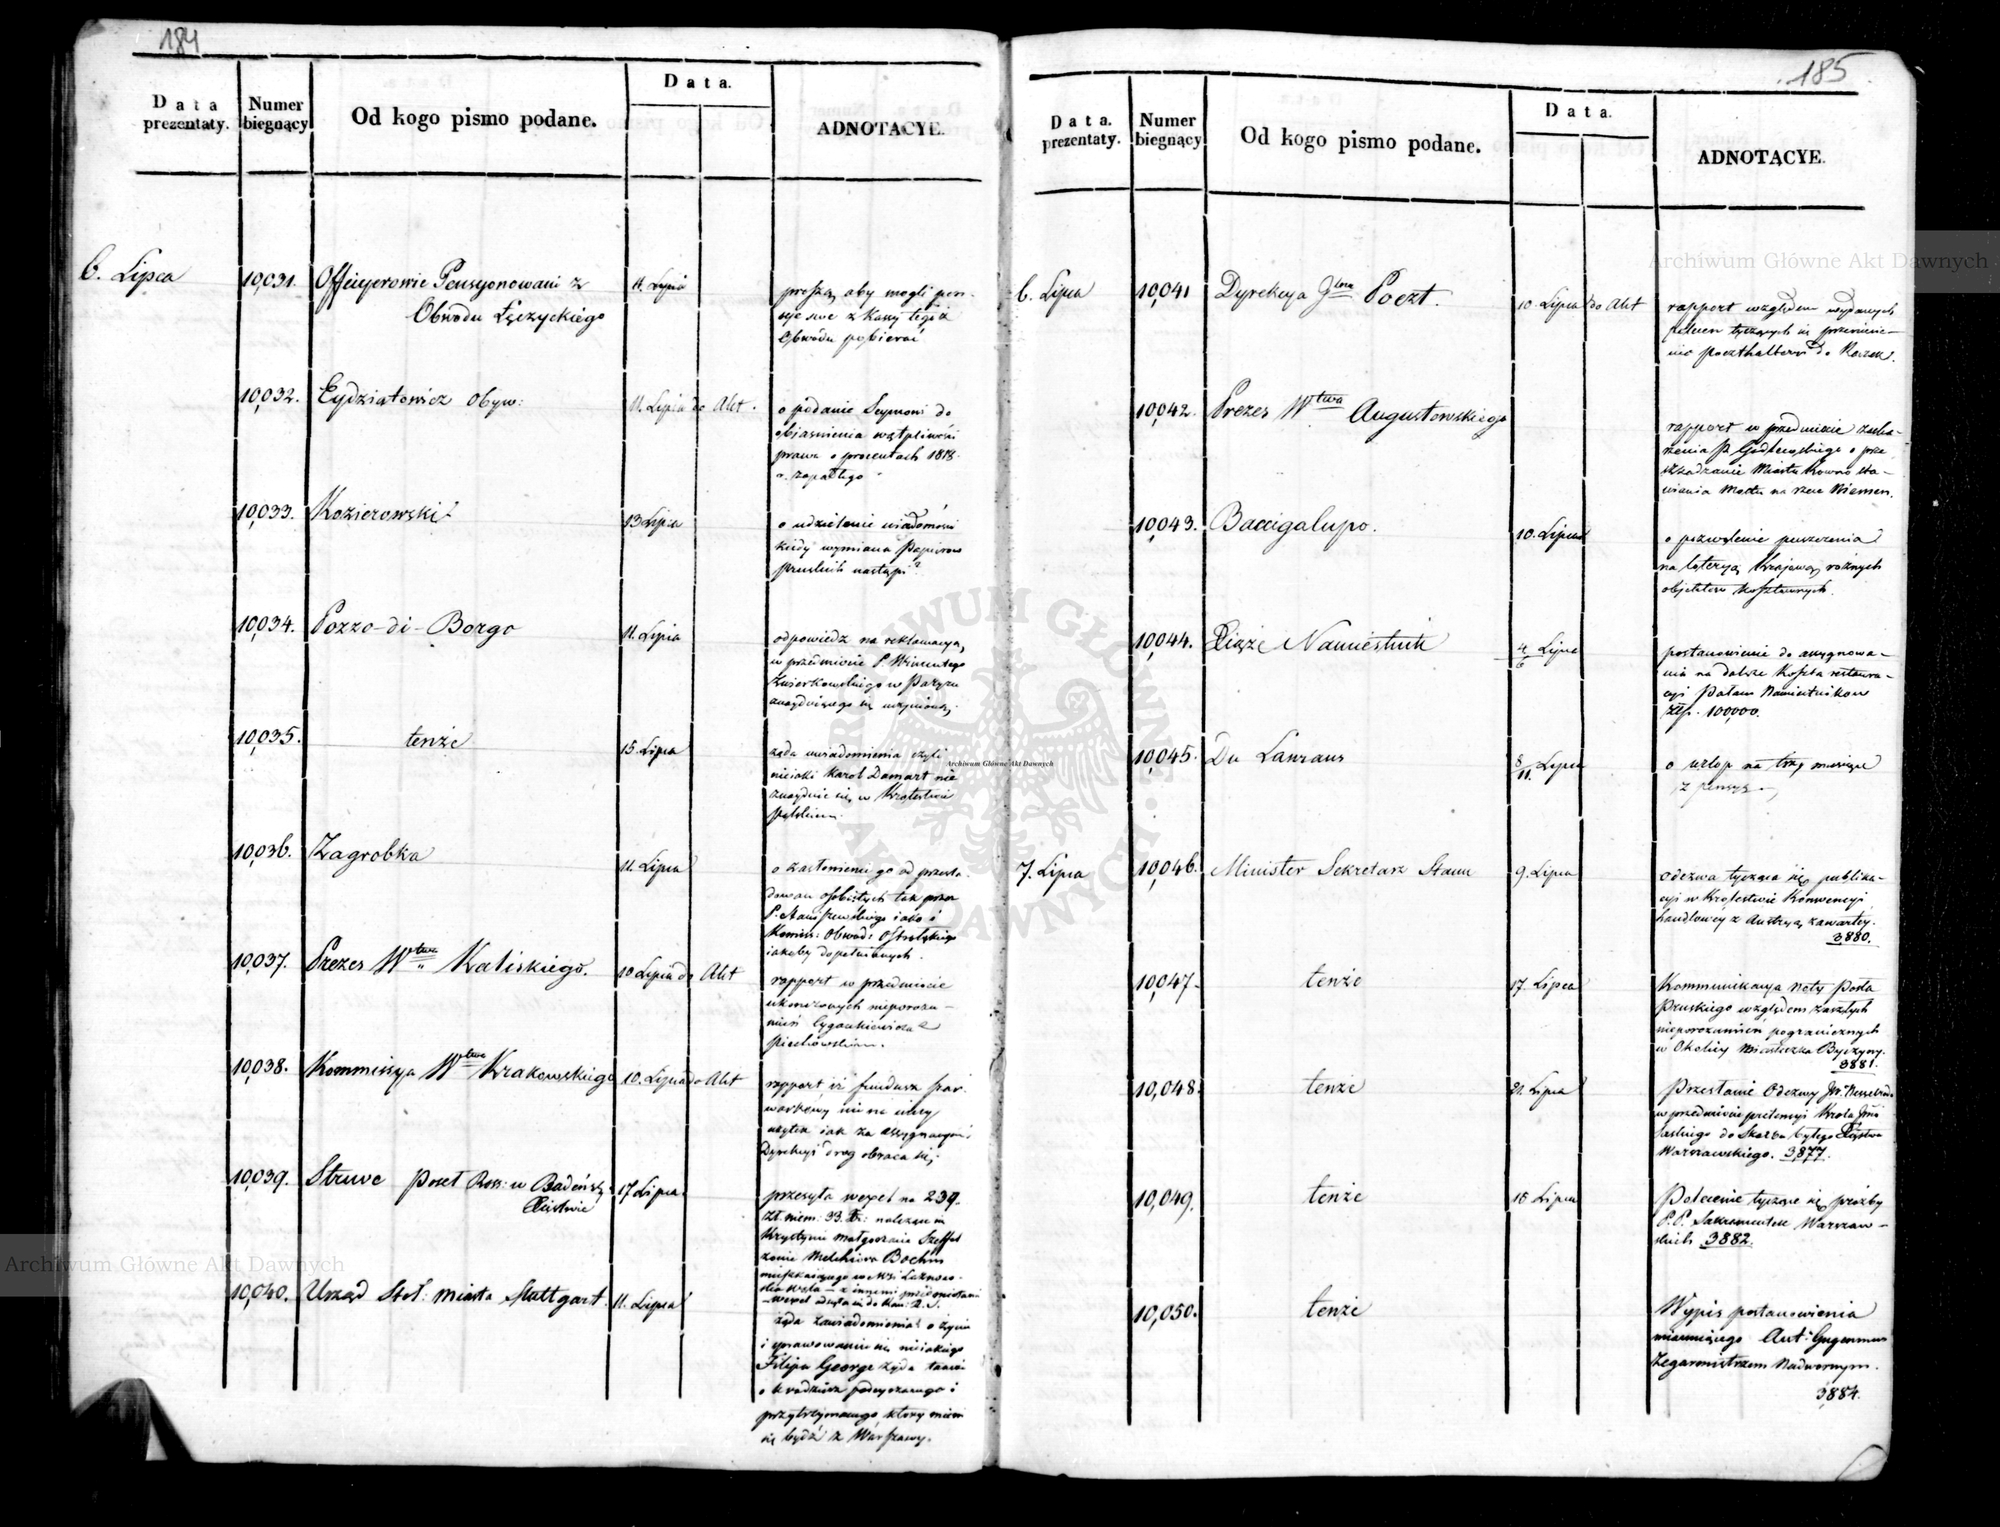 184
Data prezentaty.
Numer biegnący
Od kogo pismo podane.
Data.
ADNOTACYE.
6. Lipca
10,031.
Officyerowie Pensyonowani z
Obwodu Łęczyckiego
11. Lipca
proszą aby mogli pen-
sye swe z Kassy tegoż
Obwodu pobierać
10,032.
Eydziatowicz Obyw:
11. Lipca do Akt.
o podanie Seymowi do
objasnienia wątpliwości
prawa o procentach 1818.
r. zapadłego
10,033.
Kozierowski
13 Lipca
o udzielenie wiadomości
kiedy wymiana Papierów
Pruskich nastąpi?
10,034.
Pozzo-di-Borgo
11. Lipca
odpowiedz na reklamacyą,
w przedmiocie P. Wincentego
w Paryżu
znaydującego się uczynioną.
10,035.
tenże
15. Lipca
żąda uwiadomienia czyli
niejaki Karol Damart nie
znayduie się w Królestwie
Polskiem.
10,036.
Zagrobka
11. Lipca
o zasłonienie go od prześla-
dowań osobistych tak przez
P. Staniszewskiego iako i
Kommiss: Obwod: Ostrołęckiego
iakoby dopełnianych.
10,037.
Prezes Wtwa Kaliskiego.
10 Lipca do Akt
rapport w przedmiocie
ukończonych nieporozu-
mień Cygankiewicza z
Piechowskim.
10,038.
Kommissya Wtwa Krakowskiego
10. Lipca do Akt
rapport iż fundusz szar-
warkowy nie na inny
użytek iak za assygnacyami
Dyrekcyi drog obraca się.
10,039.
Struve Poseł Ross: w Badeńsk:
Xięstwie
17 Lipca
przesyła wexel na 239.
Zł. niem: 33. Kr: należący
Krystynie Małgorzacie
żonie Melchiora Boehm
10,040.
Urząd Stoł: miasta Stuttgart.
11. Lipca
żąda zawiadomienia o życiu
i sprawowaniu się niejakiego
Filipa George Żyda tamże
o kradzież podeyrzanego i
przytrzymanego, ktory mieni
się bydź z Warszawy.
185
Data. prezentaty.
Numer biegnący
Od kogo pismo podane.
Data.
ADNOTACYE.
6. Lipca
10,041
Dyrekcya Głna Poczt.
10. Lipca do Akt
rapport względem wydanych
poleceń tyczących się przeniesie-
nia poczthalteryi do
10,042.
Prezes Wtwa Augustowskiego
rapport w przedmiocie zaska-
rżenia P. Godlewskiego o prze-
szkadzanie Miastu Kowno sta-
wiania Mostu na rzece Niemen.
10,043.
Baccigalupo.
10. Lipca
o pozwolenie puszczenia
na loteryą Krajową różnych
objektów kosztownych.
10,044.
Xiąże Namiestnik
4/6 Lipca
postanowienie do assygnowa-
nia na dalsze koszta restaura-
cyi Pałacu Namiestników
złp. 100,000.
10,045.
Du Lanraus
8/11. Lipca
o urlop na trzy miesiące
z pensyą.
7. Lipca
10,046.
Minister Sekretarz Stanu
9. Lipca
odezwa tycząca się publika-
cyi w Królestwie Konwencyi
handlowey z Austryą zawartey.
3880.
10,047.
tenże
17. Lipca
Kommunikacya Noty Posła
Pruskiego względem zaszłych
nieporozumień pogranicznych
w Okolicy Miasteczka Byczyny.
3881.
10,048.
tenże
21. Lipca
Przesłanie Odezwy Hr. Nesselrode
w przedmiocie pretensyi Króla
Saskiego do Skarbu byłego Xięstwa
Warszawskiego. 3,877.
10,049.
tenże
15 Lipca
Polecenie tyczące się prośby
P.P. Sakramentek Warszaw-
skich 3882.
10,050.
tenże
Wypis postanowienia
mianującego Ant: Gugenmus
Zegarmistrzem Nadwornym.
3,884.
Archiwum Główne Akt Dawnych
ARCHIWUM GŁÓWNE AKT DAWNYCH
Archiwum Główne Akt Dawnych
Archiwum Główne Akt Dawnych